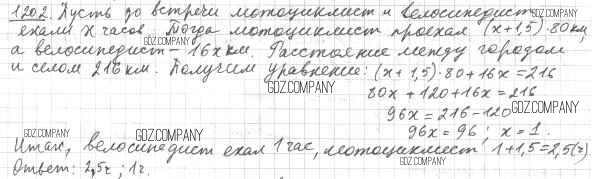 1202. Пусть до встречи мотоциклист и велосипедист
ехали x часов. Тогда мотоциклист проехал (x+1,5)·80 км,
а велосипедист – 16x км. Расстояние между городом
и селом 216 км. Получим уравнение: (x+1,5)·80+16x=216
80x+120+16x=216
96x=216-120
96x=96; x=1.
Итак, велосипедист ехал 1 час, мотоциклист 1+1,5=2,5(ч)
Ответ: 2,5ч; 1ч.
GDZ.COMPANY
GDZ.COMPANY
GDZ.COMPANY
GDZ.COMPANY
GDZ.COMPANY
GDZ.COMPANY
GDZ.COMPANY
GDZ.COMPANY
GDZ.COMPANY